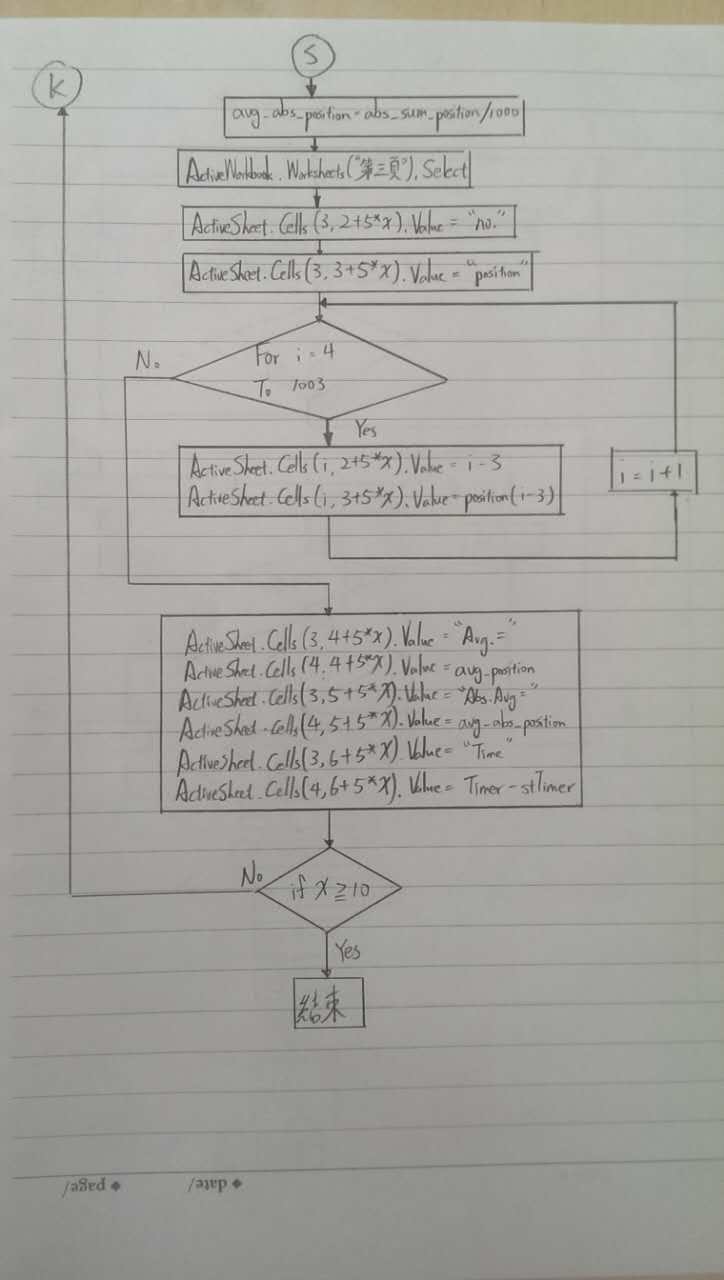 S
K
avg_abs_position=abs_sum_position/1000
ActiveWorkbook.Worksheets("第三頁").Select
ActiveSheet.Cells(3,2+5*X).Value="no."
ActiveSheet.Cells(3,3+5*X).Value="position"
No
For i=4
To 1003
Yes
ActiveSheet.Cells(i,2+5*X).Value=i-3
ActiveSheet.Cells(i,3+5*X).Value=position(i-3)
i=i+1
ActiveSheet.Cells(3,4+5*X).Value="Avg.="
ActiveSheet.Cells(4,4+5*X).Value=avg_position
ActiveSheet.Cells(3,5+5*X).Value="Abs.Avg="
ActiveSheet.Cells(4,5+5*X).Value=avg_abs_position
ActiveSheet.Cells(3,6+5*X).Value="Time"
ActiveSheet.Cells(4,6+5*X).Value=Timer-stTimer
No
if X≧10
Yes
結束
◆ date/
◆ page/